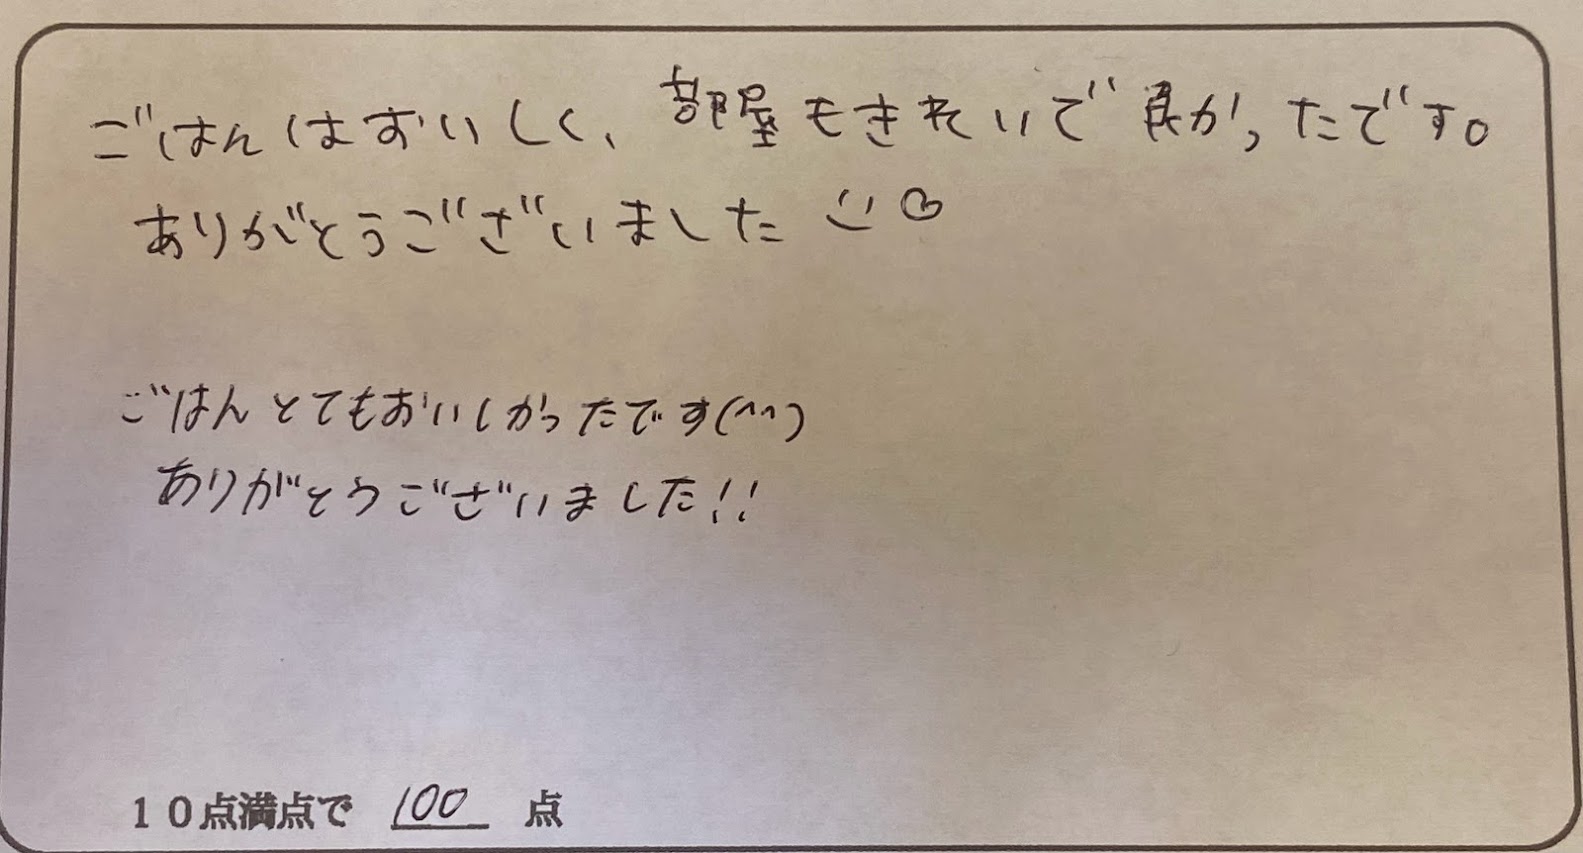 ごはんはおいしく、部屋もきれいで良かったです。
ありがとうございました
ごはんとてもおいしかったです(^^)
ありがとうございました!!
10点満点で 100 点